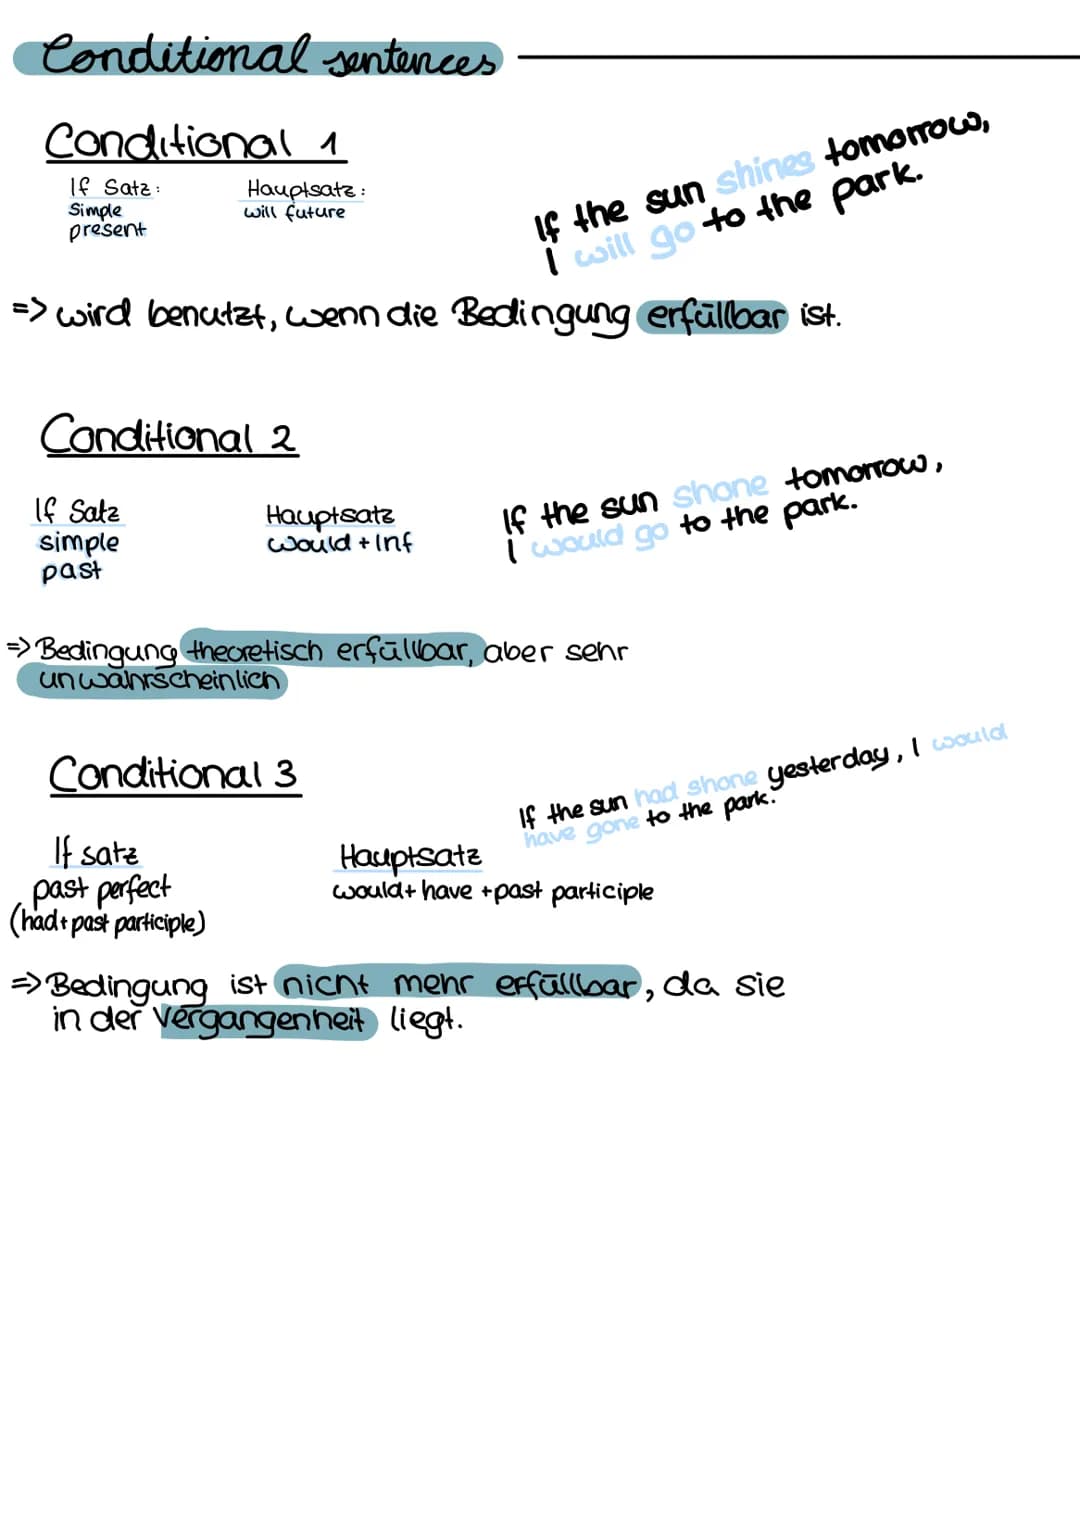 Conditional sentences
Conditional 1
If Satz:
Simple
present
Hauptsatz:
will future
If the sun shines tomorrow,
I will go to the park.
=> wird benutzt, wenn die Bedingung erfüllbar ist.
Conditional 2
If Satz
simple
past
Hauptsatz
would + Inf
If the sun shone tomorrow,
I would go to the park.
=> Bedingung theoretisch erfüllbar, aber sehr
unwahrscheinlich
Conditional 3
If satz
past perfect
(had + past participle)
Hauptsatz
would + have + past participle
If the sun had shone yesterday, I would
have gone to the park.
=> Bedingung ist nicht mehr erfüllbar, da sie
in der Vergangenheit liegt.